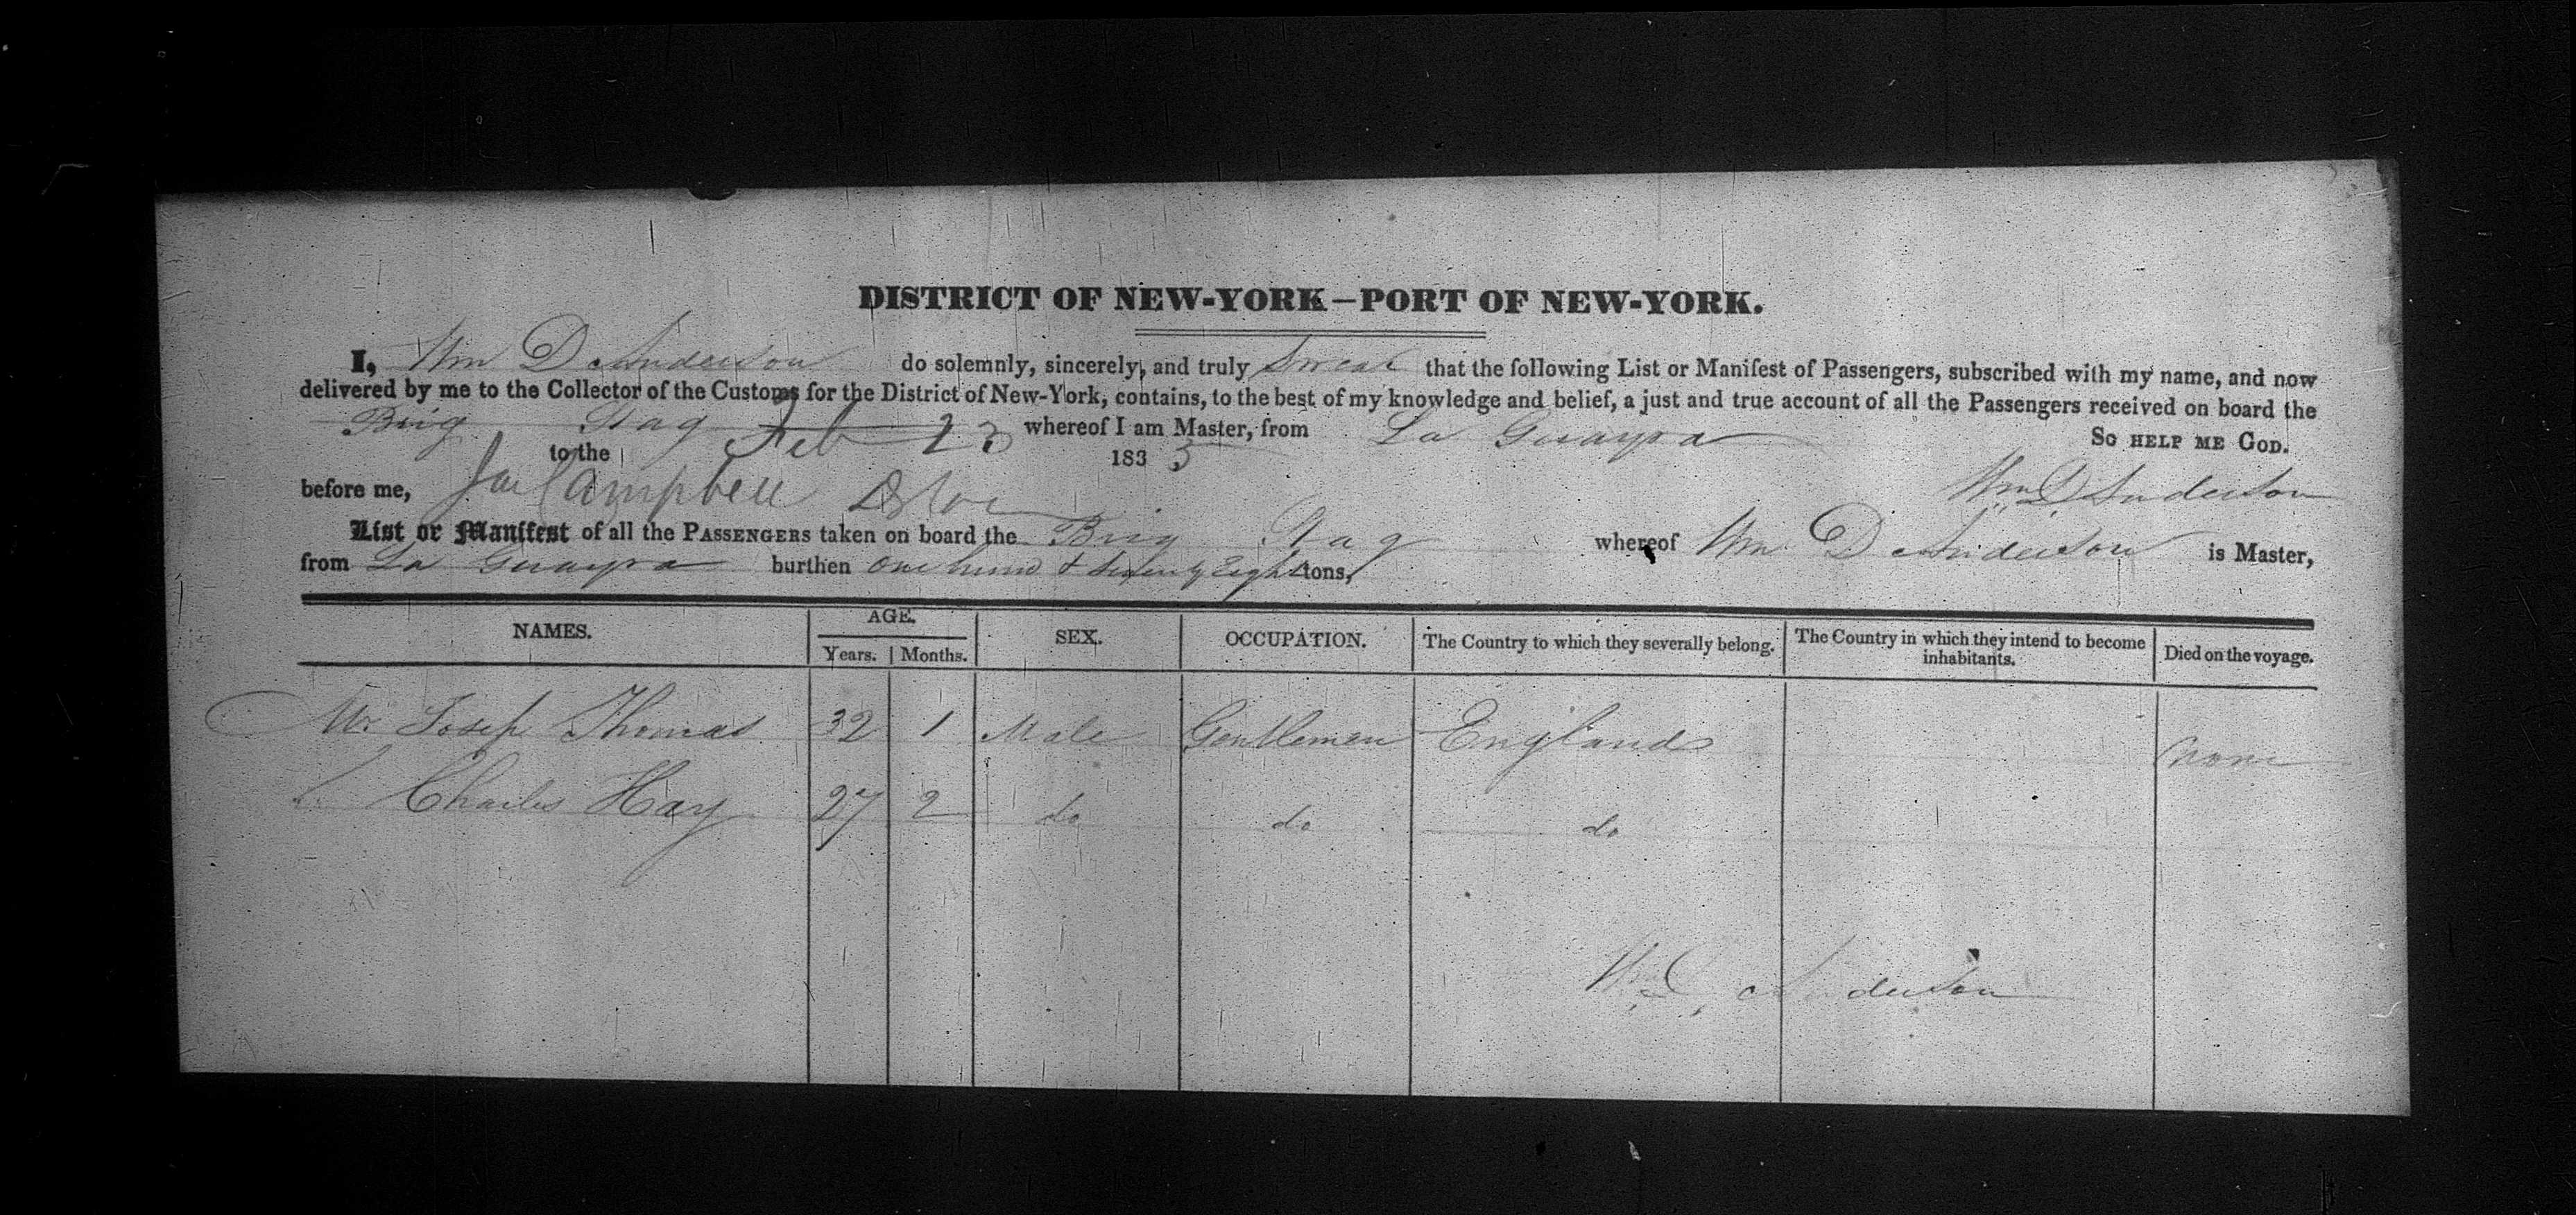 DISTRICT OF NEW-YORK—PORT OF NEW-YORK.
I, Wm D Anderson do solemnly, sincerely, and truly Swear that the following List or Manifest of Passengers, subscribed with my name, and now
delivered by me to the Collector of the Customs for the District of New-York, contains, to the best of my knowledge and belief, a just and true account of all the Passengers received on board the
Brig Stag whereof I am Master, from La Guayra
to the Feb 23 1833 So HELP ME GOD.
before me, Campbell Wm D Anderson
List or Manifest of all the PASSENGERS taken on board the Brig Stag whereof Wm D Anderson is Master,
from La Guayra burthen One hund & seventy Eight tons,
NAMES. AGE. SEX. OCCUPATION. The Country to which they severally belong. The Country in which they intend to become inhabitants. Died on the voyage.
Years. Months.
Mr. Josep Thomas 32 1 Male Gentlemen England None
Charles Hay 27 2 do do do
Wm D, Anderson